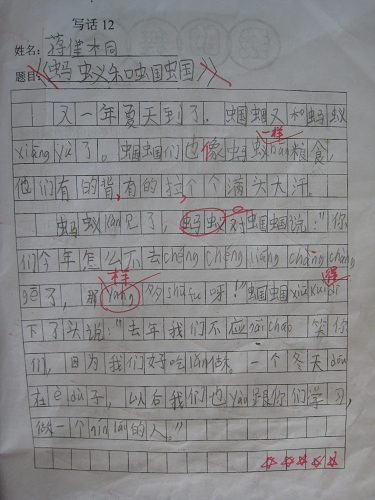 写话12
姓名: 蒋佳木同
题目:《蚂蚁和蝈蝈》
又一年夏天到了。蝈蝈又和蚂蚁
一样
xiāng yù了。蝈蝈们也像蚂蚁bān粮食,
他们有的背,有的拉,个个满头大汗。
蚂蚁kàn见了,蚂蚁对蝈蝈说:"你
们今年怎么不去chéng chéng liáng chàng chàng
样 得
gē了,那yàng多shū fu呀!"蝈蝈xiū kuì
下了头说:"去年我们不应gāi cháo笑你
们,因为我们好吃lǎn做。一个冬天dōu
在è dù子,以后我们也yào跟你们学习,
做一个qín láo的人。"